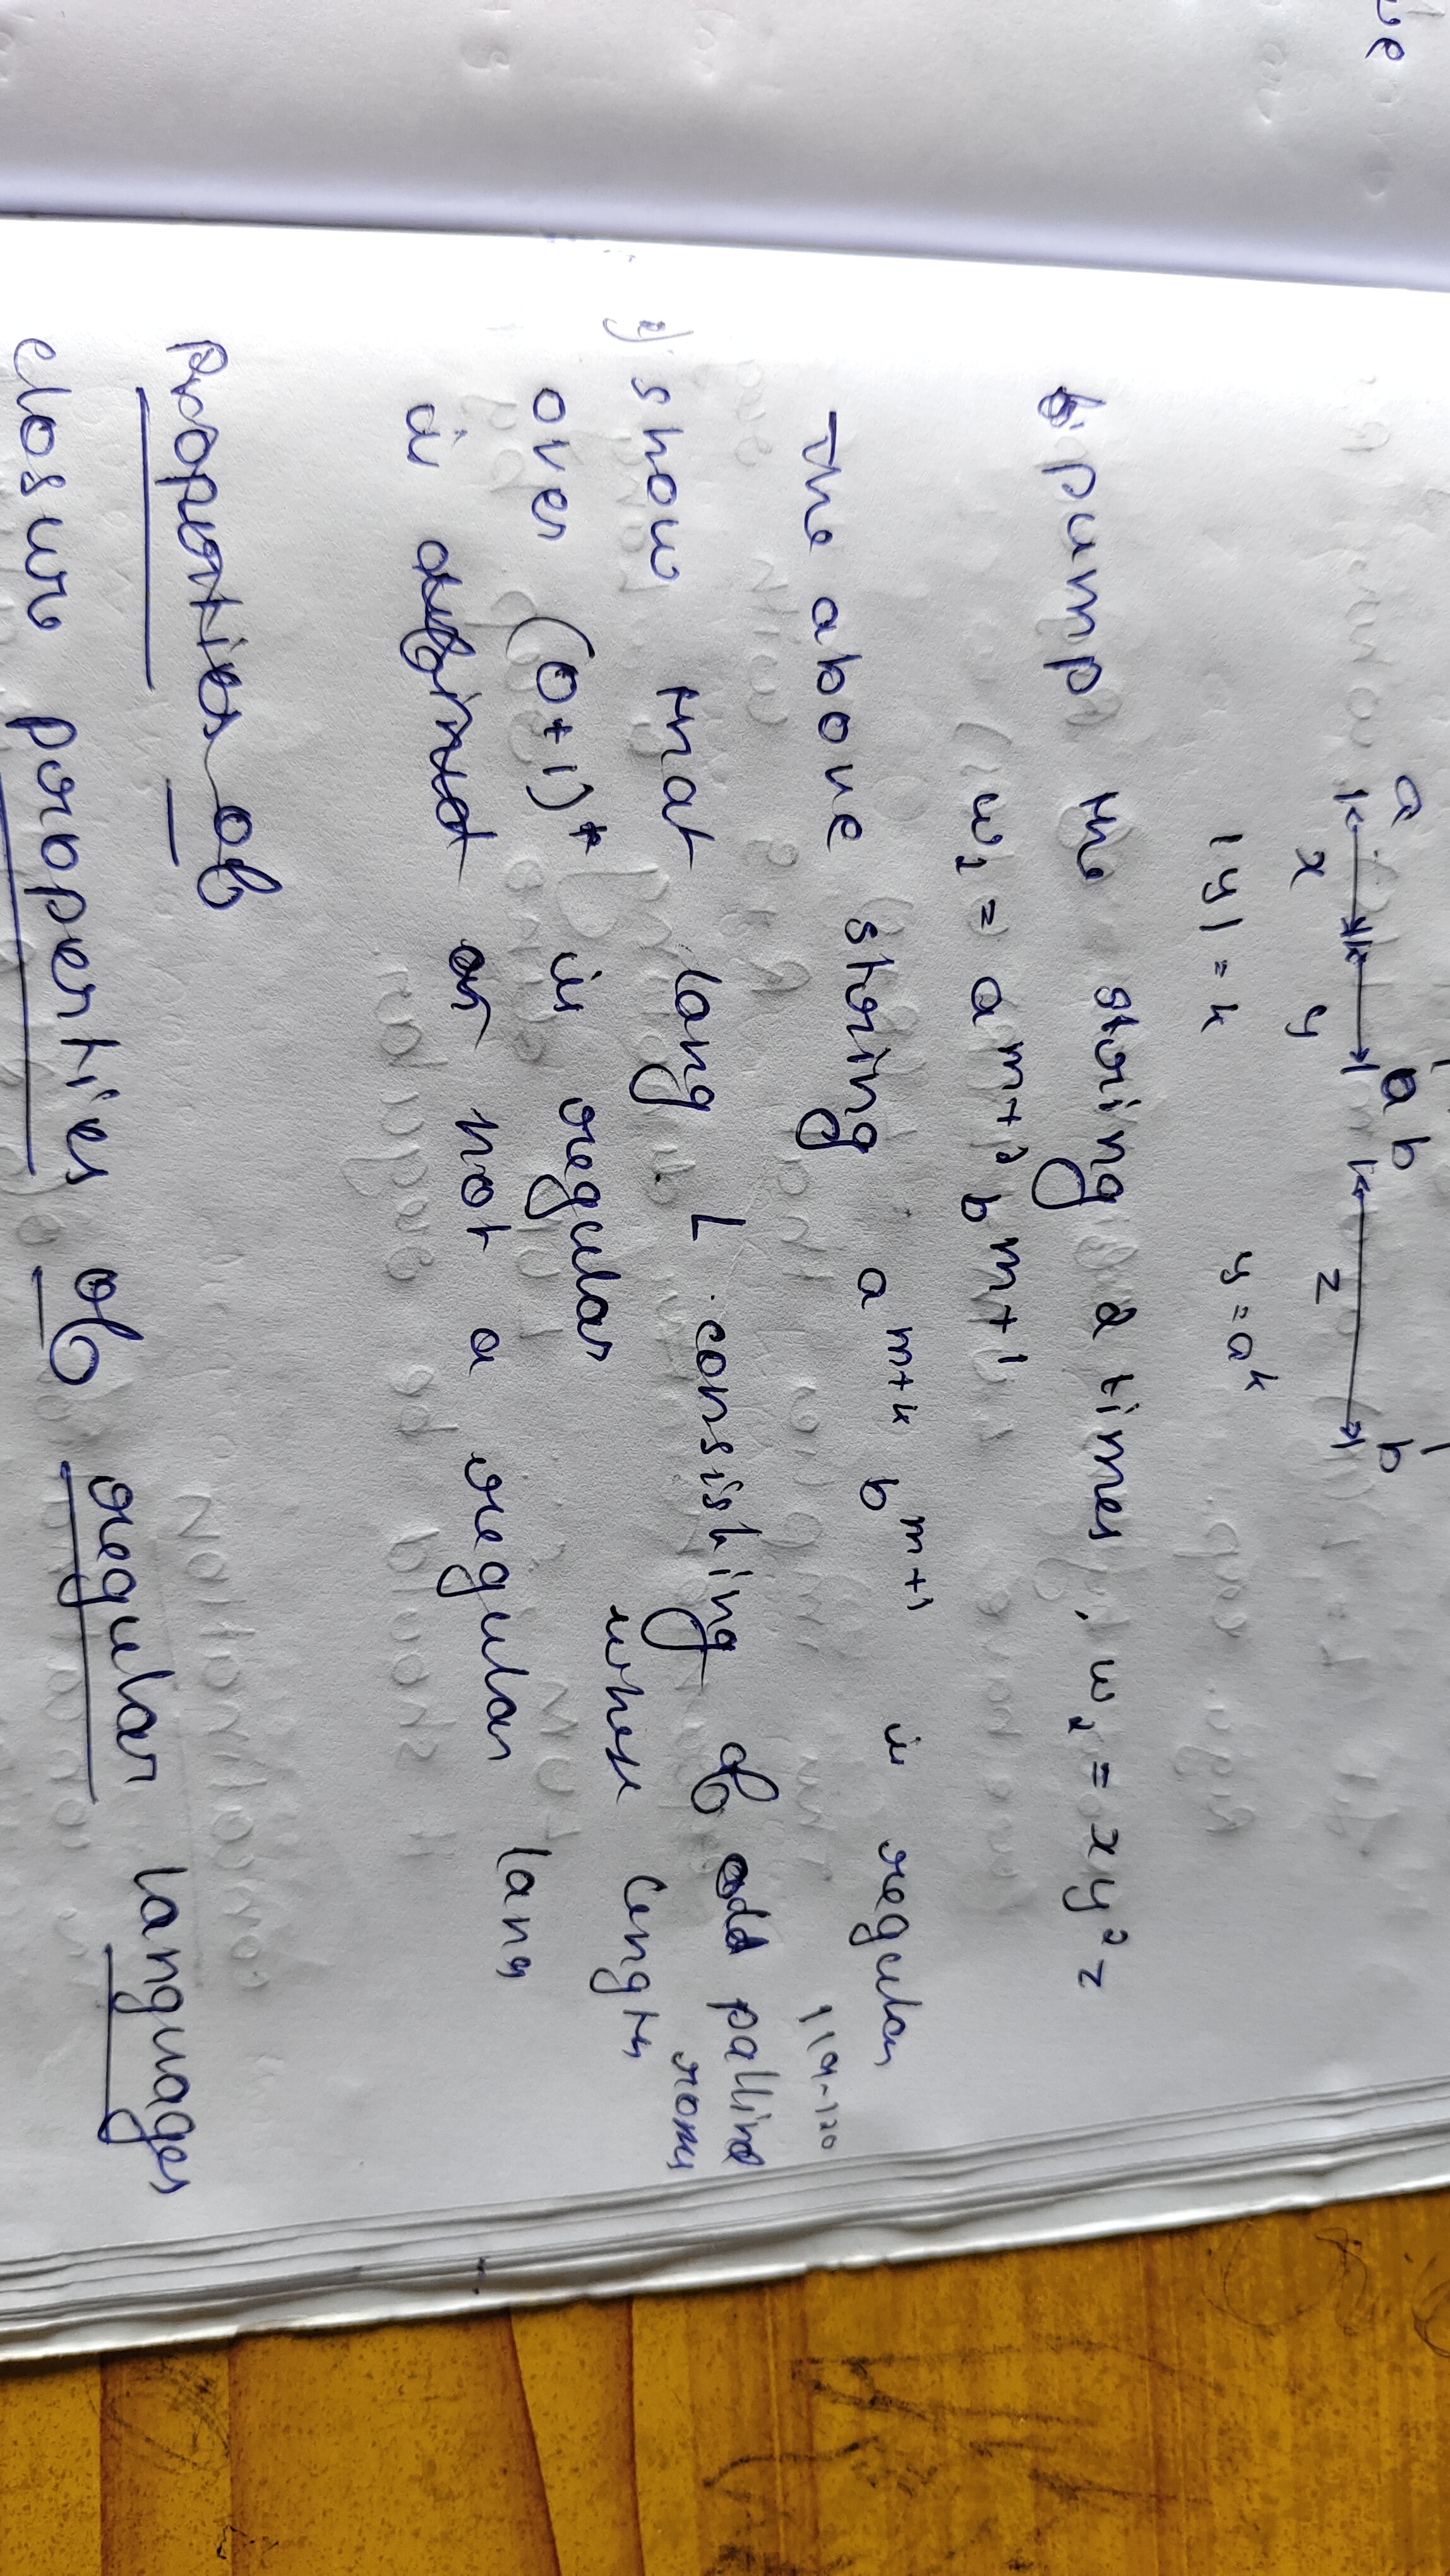 ue
a a b b
x y z
|y| = k y = a^k
pump the string 2 times, w₂ = xy²z
w₂ = a^{m+2} b^{m+1}
The above string a^{m+k} b^{m+1} is regular
119-120
2) show that lang L consisting of odd pallind
roms
over (0+1)* is regular whose length
is not a regular lang
Properties of
closure properties of regular languages